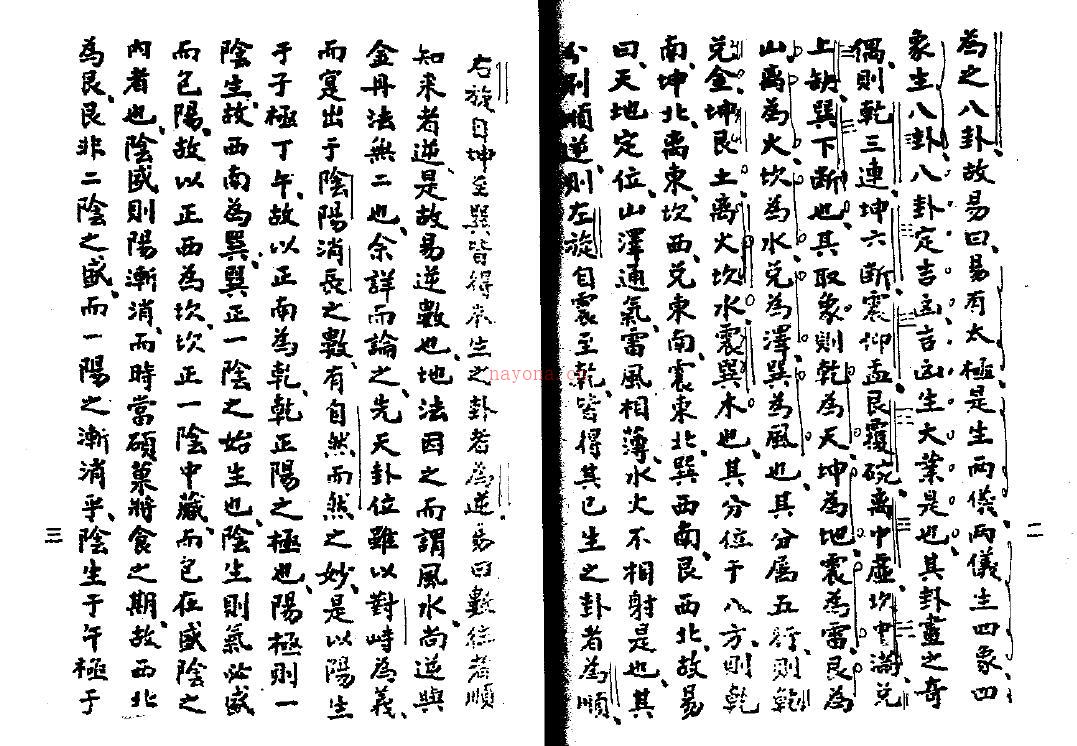 為之八卦故易曰易有太極是生兩儀兩儀生四象四
象生八卦八卦定吉凶吉凶生大業是也其卦畫之奇
偶則乾三連坤六斷震仰盂艮覆碗離中虛坎中滿兌
上缺巽下斷也其取象則乾為天坤為地震為雷艮為
山離為火坎為水兌為澤巽為風也其分屬五行則乾
兌金坤艮土離火坎水震巽木也其分位于八方則乾
南坤北離東坎西兌東南震東北巽西南艮西北故易
曰天地定位山澤通氣雷風相薄水火不相射是也其
分別順逆則左旋自震至乾皆得其已生之卦者為順
二
右旋自坤至巽皆得未生之卦者為逆易曰數往者順
知来者逆是故易逆數也地法因之而謂風水尚逆與
金丹法無二也余詳而論之先天卦位雖以對峙為義
而寔出于陰陽消長之數有自然而然之妙是以陽生
于子極于午故以正南為乾乾正陽之極也陽極則一
陰生故西南為巽巽正一陰之始生也陰生則氣必盛
而包陽故以正西為坎坎正一陰中藏而包在盛陰之
內者也陰盛則陽漸消而時當碩菓將食之期故西北
為艮艮非二陰之盛而一陽之漸消乎陰生于午極于
三
nayona.cn